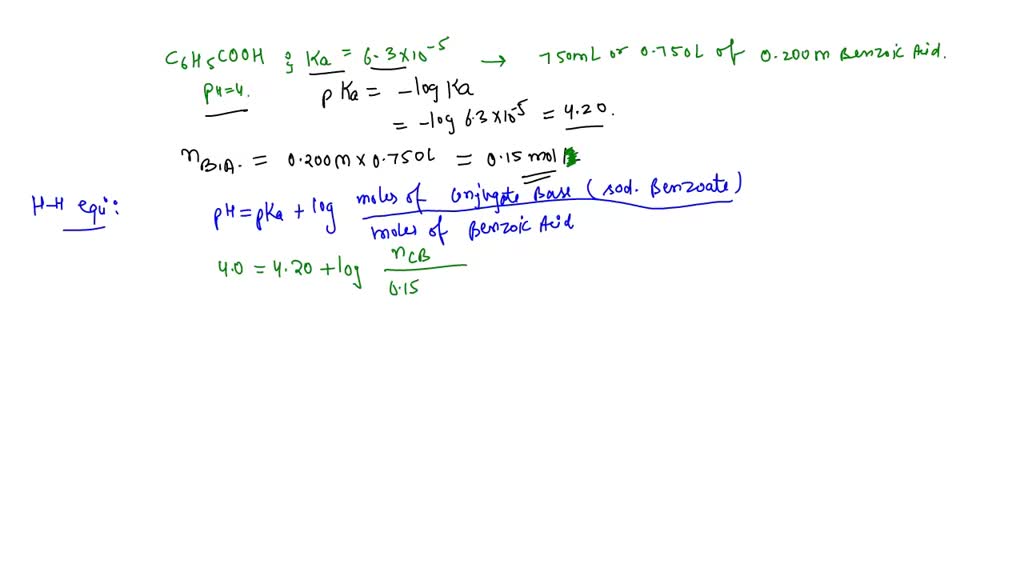 C6H5COOH ; Ka = 6.3×10^-5 → 750mL or 0.750L of 0.200m Benzoic Acid.
pH=4. pKa = -log Ka
= -log 6.3×10^-5 = 4.20.
nB.A. = 0.200m × 0.750L = 0.15 mol
H-H equ: pH = pKa + log moles of Conjugate Base (sod. Benzoate)
moles of Benzoic Acid
4.0 = 4.20 + log nCB
0.15